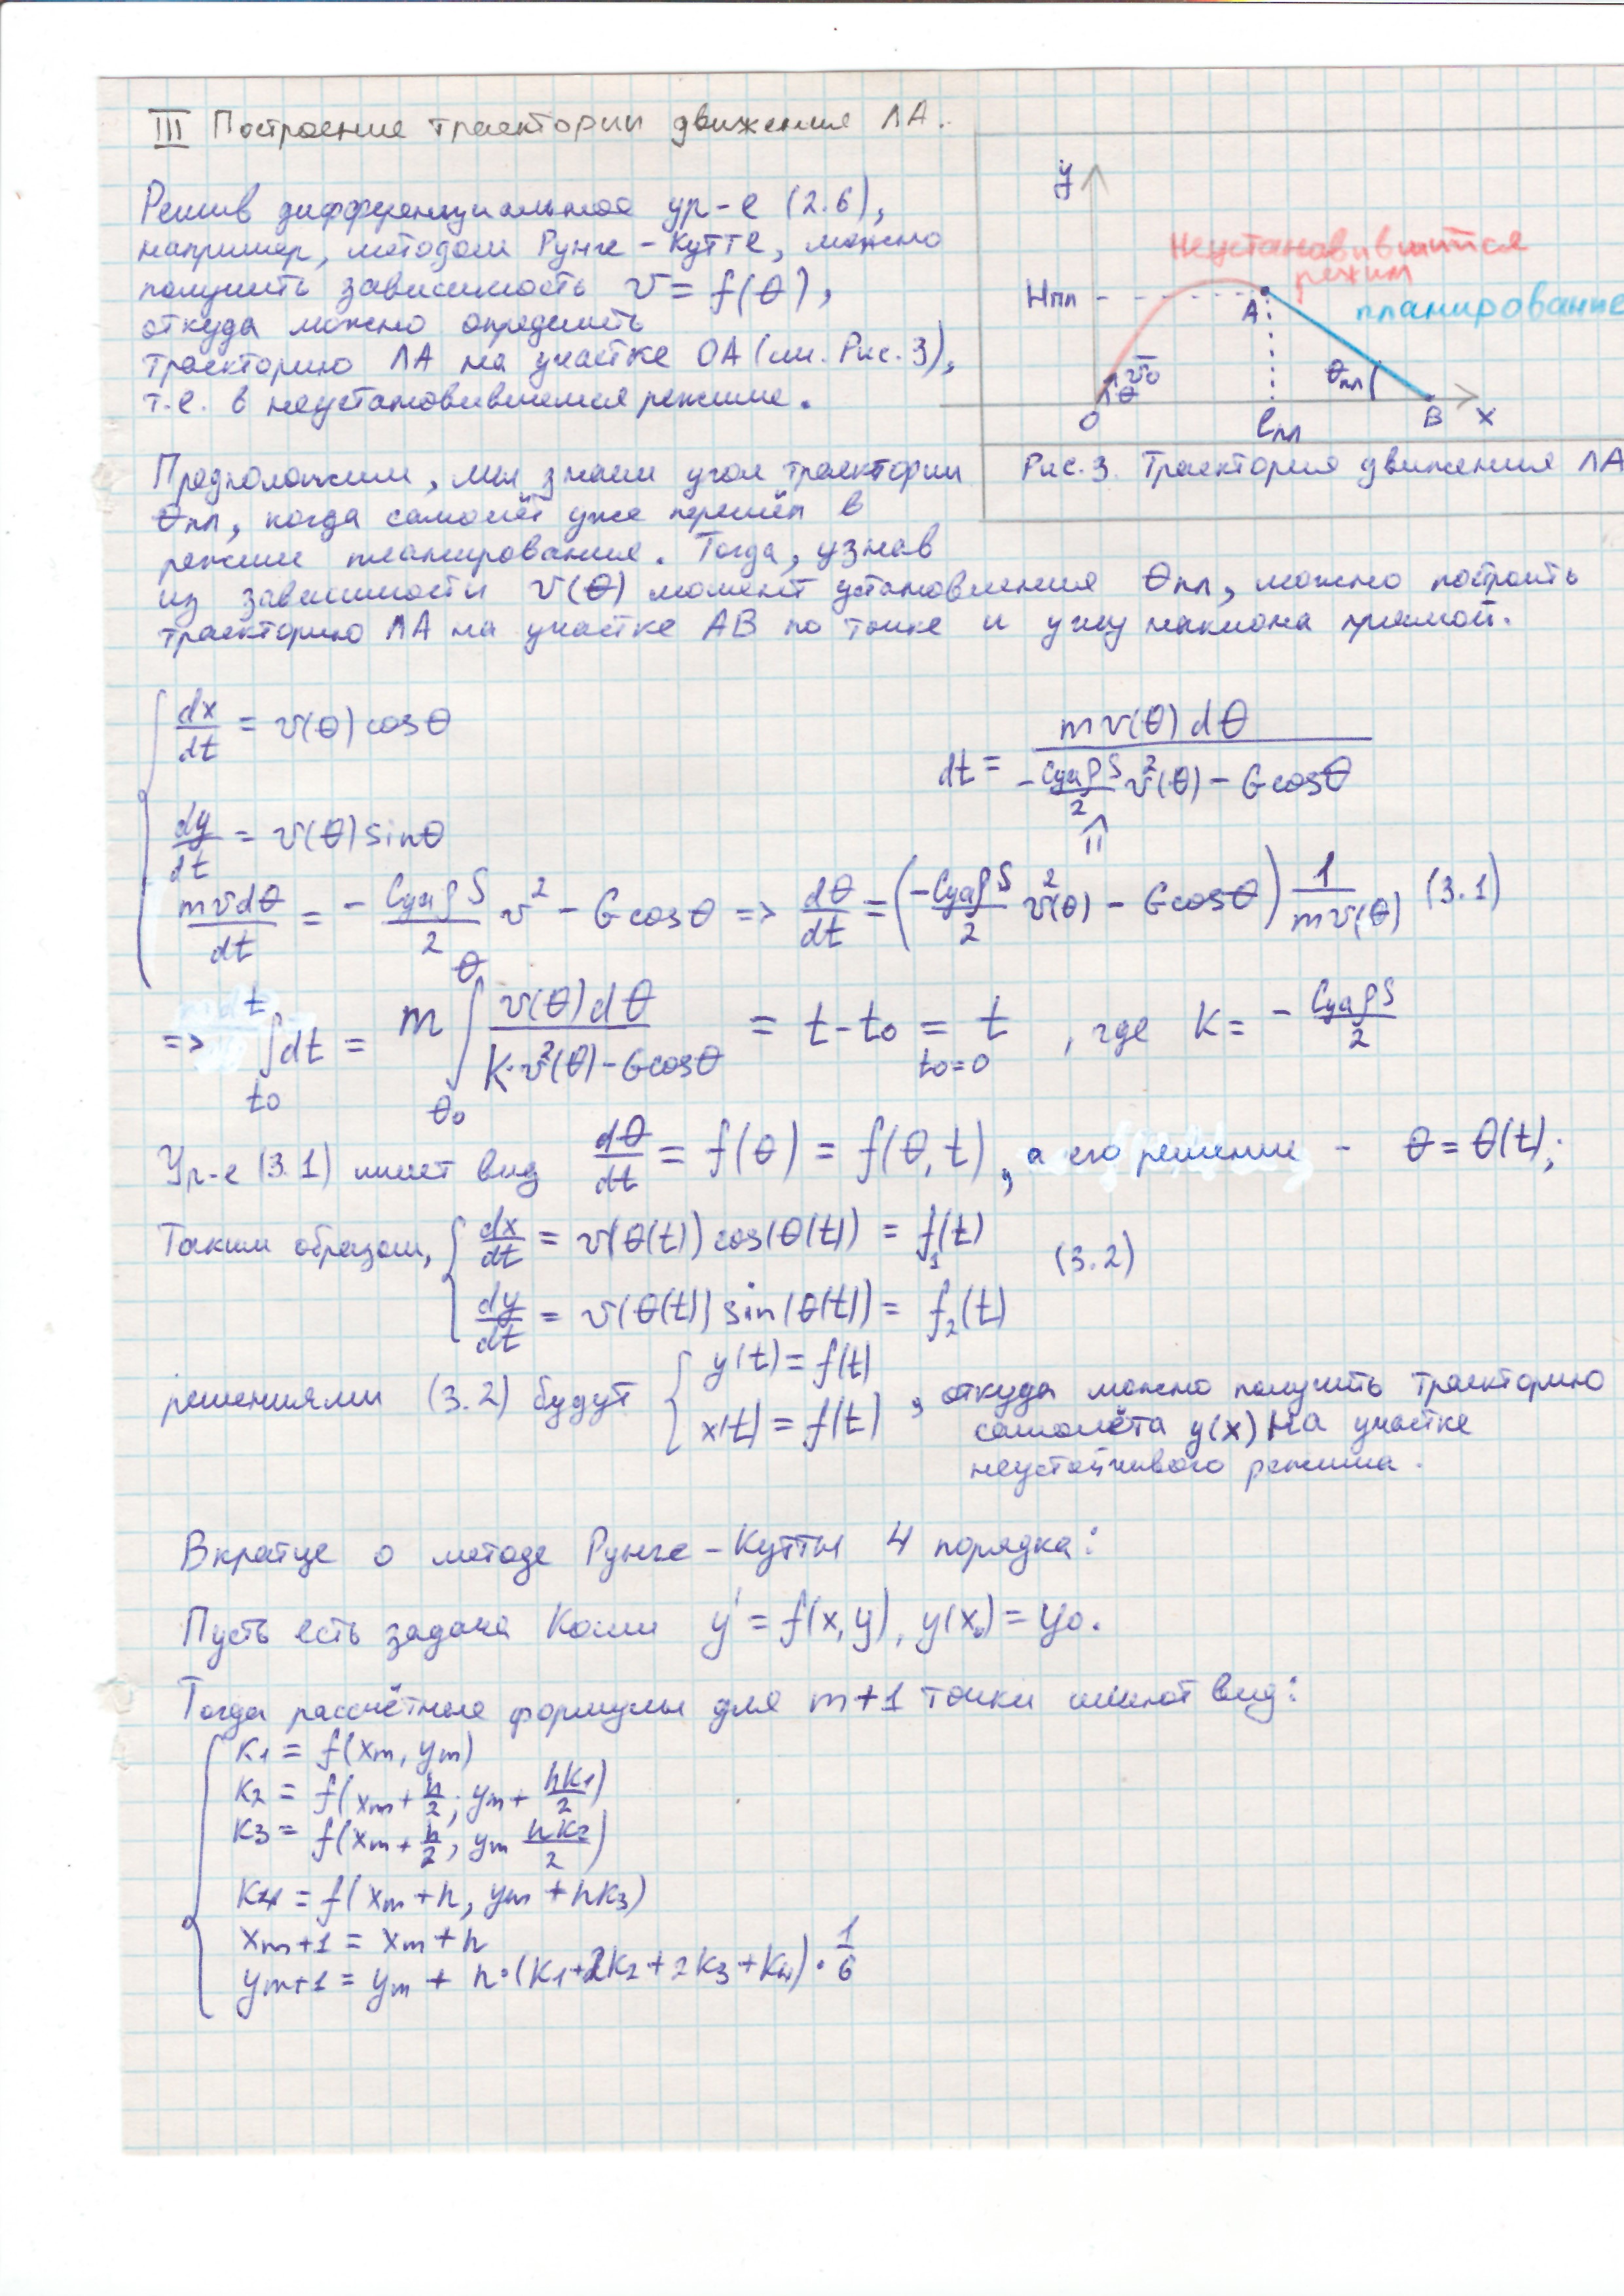 III Построение траектории движения ЛА.
Решив дифференциальное ур-е (2.6),
например, методом Рунге-Кутте, можно
получить зависимость v = f(θ),
откуда можно определить
траекторию ЛА на участке OA (см. Рис. 3),
т.е. в неустановившемся режиме.
y
Неустановившийся
режим
Hпл
A
планирование
v̄₀
θ
θпл
O
lпл
B
x
Рис. 3. Траектория движения ЛА
Предположим, мы знаем угол траектории
θпл, когда самолёт уже перешёл в
режим планирования. Тогда, узнав
из зависимости v(θ) момент установления θпл, можно построить
траекторию ЛА на участке AB по точке и углу наклона прямой.
{ dx/dt = v(θ) cosθ
dt = mv(θ)dθ / (-CyaρS/2 v²(θ) - G cosθ)
dy/dt = v(θ) sinθ
⇑
mvdθ/dt = - CyaρS/2 v² - G cosθ => dθ/dt = (-CyaρS/2 v²(θ) - G cosθ) 1/mv(θ) (3.1)
=> ∫_{t₀}^{t} dt = m ∫_{θ₀}^{θ} v(θ)dθ / (K·v²(θ) - G cosθ) = t - t₀ = t , где K = - CyaρS/2
t₀=0
Ур-е (3.1) имеет вид dθ/dt = f(θ) = f(θ, t), а его решение - θ = θ(t);
Таким образом, { dx/dt = v(θ(t)) cos(θ(t)) = f₁(t)
(3.2)
dy/dt = v(θ(t)) sin(θ(t)) = f₂(t)
решениями (3.2) будут { y(t) = f(t)
x(t) = f(t) , откуда можно получить траекторию
самолёта y(x) на участке
неустойчивого режима.
Вкратце о методе Рунге-Кутты 4 порядка:
Пусть есть задача Коши y' = f(x, y), y(x₀) = y₀.
Тогда рассчётные формулы для m+1 точки имеют вид:
{ K₁ = f(xm, ym)
K₂ = f(xm + h/2; ym + hK₁/2)
K₃ = f(xm + h/2, ym hK₂/2)
K₄ = f(xm + h, ym + hK₃)
xm+1 = xm + h
ym+1 = ym + h·(K₁ + 2K₂ + 2K₃ + K₄) · 1/6